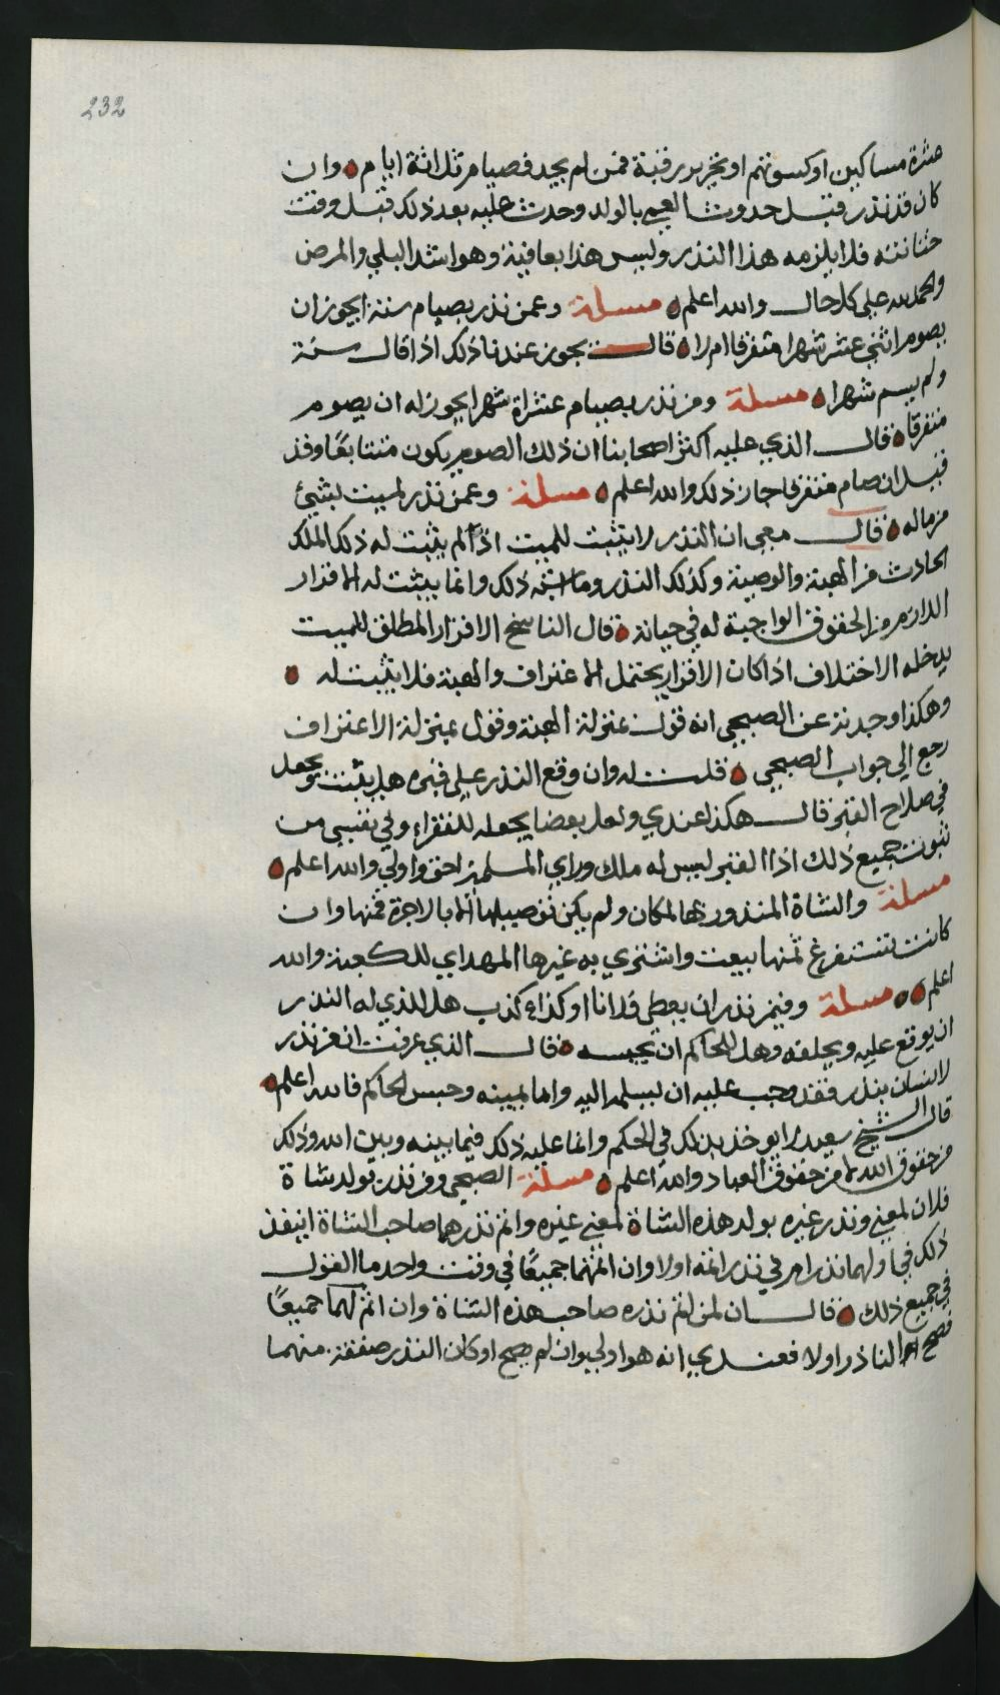 232
عشرة مساكين او كسوتهم او تحرير رقبة فمن لم يجد فصيام ثلاثة ايام وان
كان قد نذر قبل حدوث العمى بالولد وحدث عليه بعد ذلك قبل وقت
ختانته فلا يلزمه هذا النذر وليس هذا بعافية وهو اشد البلى والمرض
والحمد لله على كل حال والله اعلم مسئلة وعمن نذر بصيام سنة ايجوز ان
يصوم اثني عشر شهرا متفرقا ام لا قال يجوز عندنا ذلك اذا قال سنة
ولم يسم شهرا مسئلة ومن نذر بصيام عشرة شهرا يجوز له ان يصوم
متفرقا قال الذي عليه اكثر اصحابنا ان ذلك الصوم يكون متتابعًا وقد
قيل ان صام متفرقا جاز ذلك والله اعلم مسئلة وعمن نذر لميت بشيئ
من ماله قال معي ان النذر لا يثبت للميت اذا لم يثبت له ذلك الملك
الحادث من الهبة والوصية وكذلك النذر وما اشبه ذلك وانما يثبت له الاقرار
اللازم من الحقوق الواجبة له في حياته قال الناسخ الاقرار المطلق للميت
يدخله الاختلاف اذا كان الاقرار يحتمل الاعتراف والهبة فلا يثبت له
وهكذا وجدته عن الصبحي انه قول بمنزلة الهبة وقول بمنزلة الاعتراف
رجع الى جواب الصبحي قلت له وان وقع النذر على قبره هل يثبت ويجعل
في صلاح القبر قال هكذا عندي ولعل بعضا يجعله للفقراء وفي نفسي من
ثبوت جميع ذلك اذا القبر ليس له ملك وراي المسلمين احق واولى والله اعلم
مسئلة والشاة المنذور بها لمكان ولم يكن توصيلها الا بالاجرة فمنها وان
كانت تستفرغ ثمنها بيعت واشتري به غيرها المهداي للكعبة والله
اعلم مسئلة وفيمن نذر ان يعطى فلانا او كذا وكذب هل للذي له النذر
ان يوقع عليه ويحلفه وهل للحاكم ان يحبسه قال الذي عرفت ان من نذر
لانسان بنذر فقد وجب عليه ان يسلمه اليه واما يمينه وحبس الحاكم فالله اعلم
قال الشيخ سعيد لا يوخذ بذلك في الحكم وانما عليه ذلك فيما بينه وبين الله وذلك
من حقوق الله لا من حقوق العباد والله اعلم مسئلة الصبحي ومن نذر بولد شاة
فلان لمعنى ونذر غيره بولد هذه الشاة لمعنى غيره وانم نذرهما صاحب الشاة اينفذ
ذلك في اولهما نذرا مر في نذر اتمه اولا وان اتمهما جميعًا في وقت واحد ما القول
في جميع ذلك قال ان لمن اتم نذره صاحب هذه الشاة وان اتم لهما جميعًا
فصح الناذر اولا فعندي انه هو اولى وان لم يصح او كان النذر صفقة منهما